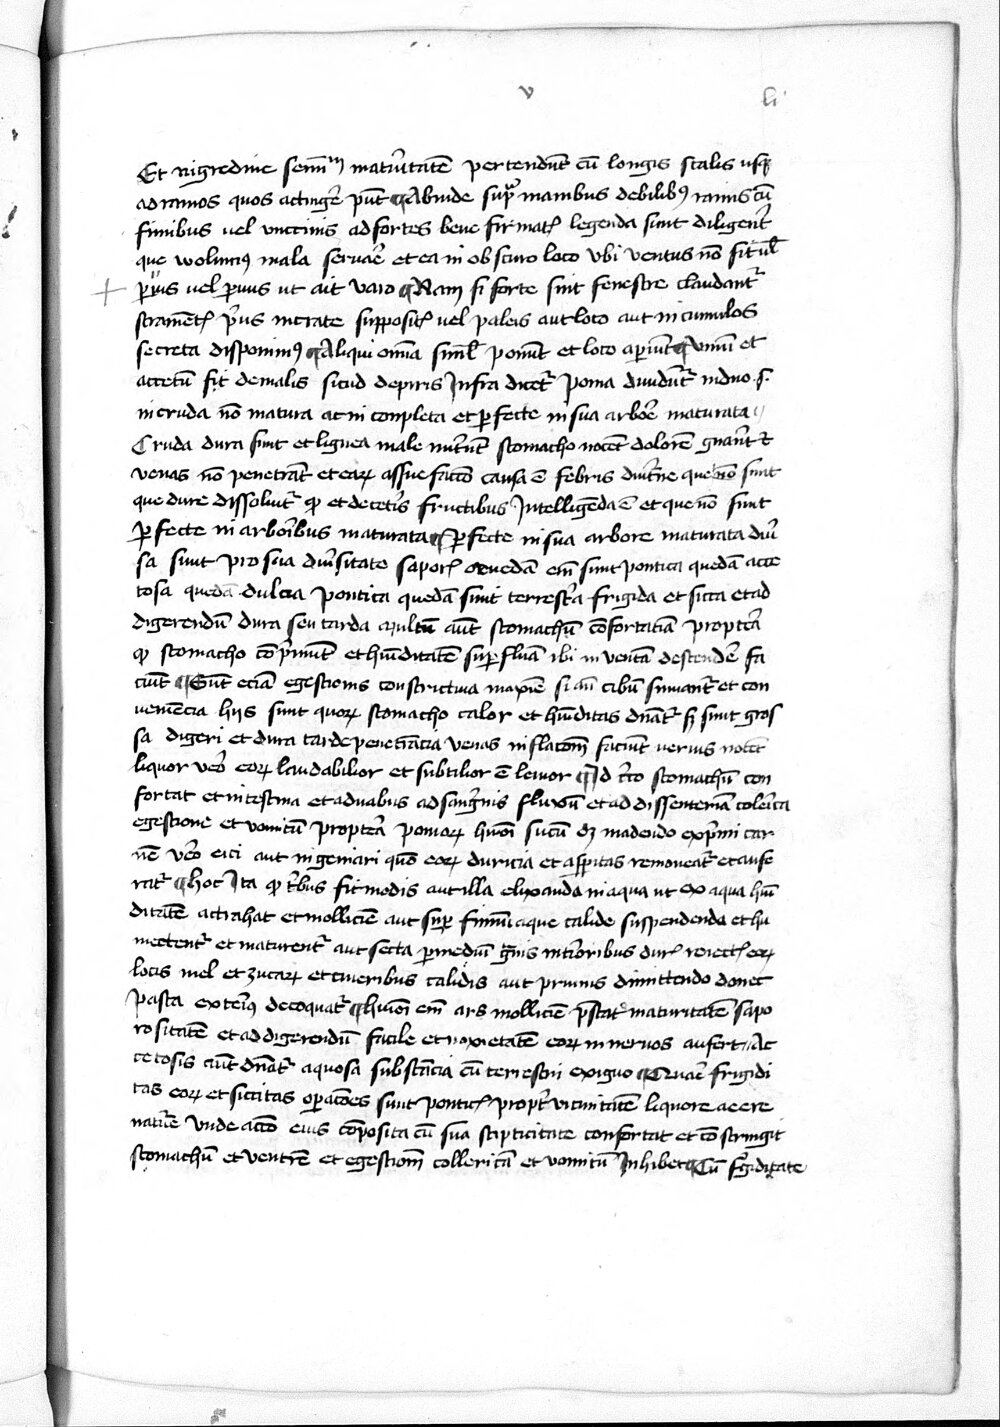 v
li
Et nigredine semīm maturitatē pertendunt cū longis scalis usq
ad ramos quos actingēr pn̄t ¶ Abinde sup manibus debilib9 ramis cū
funibus vel unctinis ad fortes bene firmat legenda sunt diligent
que volum9 mala servare et ea in obscuro loco ubi ventus nō sit vel
pvus vel pvius ut ait varo ¶ Nam si forte sint fenestre claudant
strament p̄us in crate supposit vel paleis aut loto aut in cumulos
secreta disponim9 ¶ Aliqui omīa siml̄ ponūt et loco aperiūt ¶ vinū et
accetū fit de malis sicud de piris Infra dicet poma dividūt in duo s.
in cruda nō matura ac in completa et perfecte in sua arbore maturata
Cruda dura sunt et lignea male nutriūt stomacho nocēt dolorē gnāt
venas nō penetrāt et earum assuefactō causa ē febris diutne que nō sunt
que dure dissolvūt q et de ceteris fructibus Intelligēda ē et que nō sunt
perfecte in arboribus maturata ¶ Perfecte in sua arbore maturata div
sa sunt pro sua divsitate sapor quedam em̄ sunt pontica quedā acce
tosa quedā dulcia pontica quedā sunt terrestra frigida et sicca et ad
digerendū dura seu tarda multū aut stomachū cōfortatia propterea
q stomacho cōprimūt et humiditatē superfluā ibi inventā descendē fa
ciūt ¶ Sunt eciā egestionis constrictiva maxie si an̄ cibū sumant et con
veniencia hiis sunt quorum stomacho calor et humiditas dnāt s; sunt gros
sa digeri et dura tarde penetrancia venas inflacionē faciūt nervis nocēt
liquor vero eorum laudabilior et subtilior ē levior ¶ Id circo stomachū con
fortat et intestina et a duabus ad sanguinis fluxū et ad dissenteriā colerica
egestione et vomitū propterea pomorum humoi sucū d; madendo exprimi car
nē vero eici aut ingeniari quō eorum duricia et aspitas removeat et aufe
rat ¶ hoc Ita q tribus fit modis aut illa elixanda in aqua ut ex aqua hum
ditatē actrahat et molliciē aut super fumū aque calide suspendenda et hu
mectent et maturent aut secta p medium granis interioribus dur reiect eorum
locis mel et zucarum et cineribus calidis aut prunis dimittendo donec
pasta exteri9 decoquat ¶ huiuōi em̄ ars molliciē prestat maturitatē sapo
rositatē et ad digerendū facile et noxietatē eorum in nervos aufert Ac
cetosis aut dnāt aquosa substācia cū terrestri exiguo ¶ Quare frigidi
tas eorum et siccitas operacōes sunt pontic propt vicinitatē liquore aeree
nature unde actō eius cōposita cū sua stipticitate confortat et cōstringit
stomachū et ventrē et egestionē collericā et vomitū Inhibet ¶ Cū frigiditate